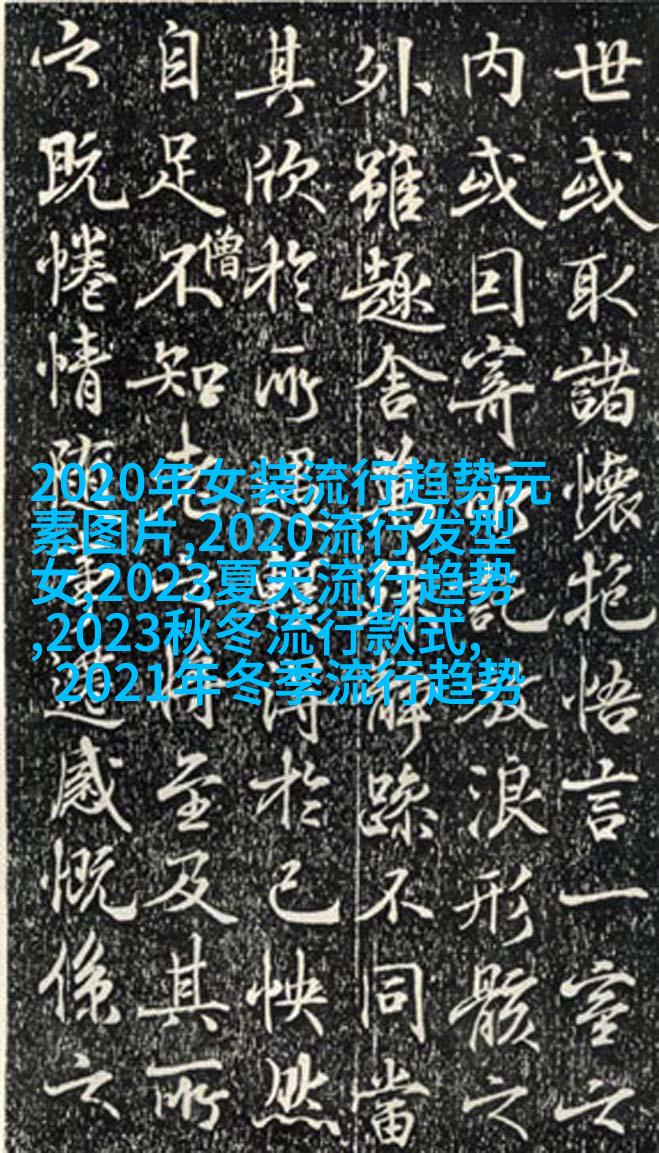 世或取諸懷抱悟言一室之
内或因寄所託放浪形骸之
外雖趣舍萬殊靜躁不同當
其欣於所遇蹔得於己怏然
自足不知老之將至及其所
僧
之既惓情隨事遷感慨係之
2020年女装流行趋势元
素图片,2020流行发型
女,2023夏天流行趋势
,2023秋冬流行款式,
2021年冬季流行趋势